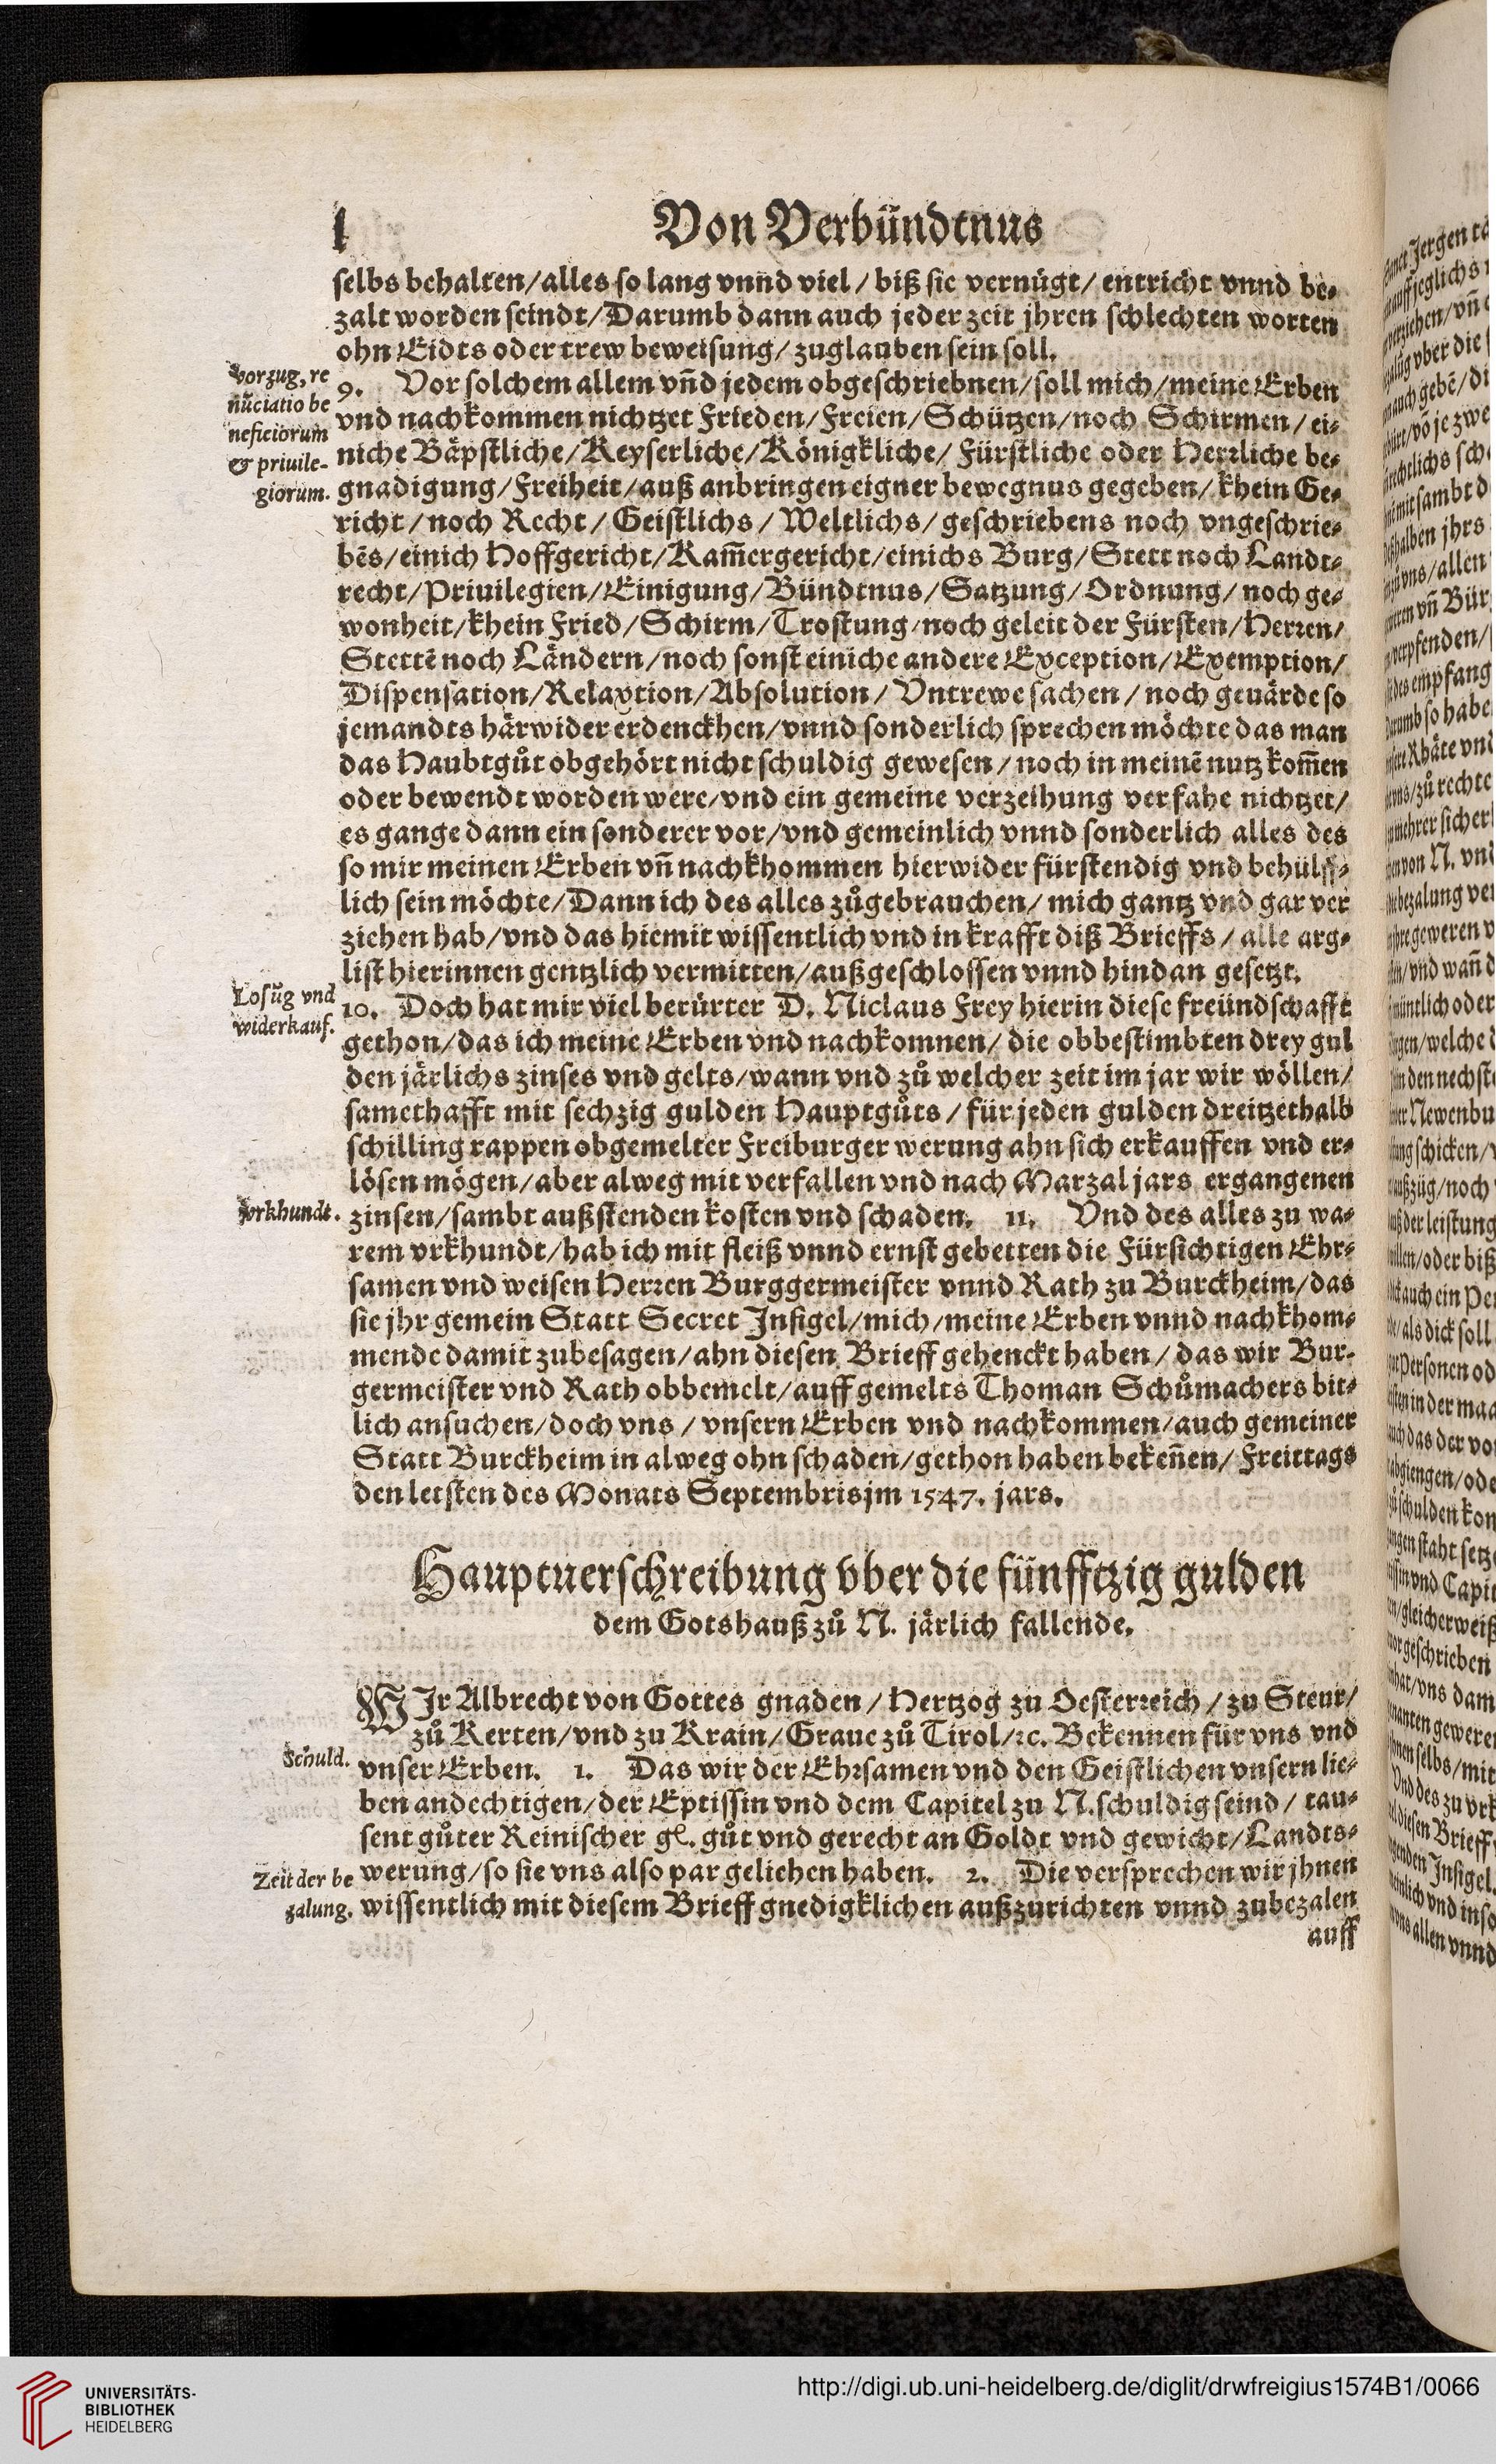 l
Von Verbündtnus
selbs behalten/alles so lang vnnd viel / biß sie vernügt/ entricht vnnd be-
zalt worden seindt/Darumb dann auch jeder zeit jhren schlechten worten
ohn Eidts oder trew beweisung/ zuglauben sein soll.
vorzug, re
nũciatio be
neficiorum
& priuile-
giorum.
9. Vor solchem allem vñd jedem obgeschriebnen/soll mich/meine Erben
vnd nachkommen nichtzet Frieden/Freien/Schützen/noch Schirmen/ ei-
niche Bäpstliche/Keyserliche/Königkliche/ Fürstliche oder Herrliche be-
gnadigung/Freiheit/auß anbringen eigner bewegnus gegeben/ khein Ge-
richt/noch Recht/Geistlichs/Weltlichs/geschriebens noch vngeschrie-
bẽs/einich Hoffgericht/Kam̃ergericht/einichs Burg/Stett noch Landt-
recht/Priuilegien/Einigung/Bündtnus/Satzung/Ordnung/noch ge-
wonheit/khein Fried/Schirm/Trostung/noch geleit der Fürsten/Herren/
Stettẽ noch Ländern/noch sonst einiche andere Exception/Exemption/
Dispensation/Relaxtion/Absolution/ Vntrewe sachen / noch geuärde so
jemandts härwider erdenckhen/vnnd sonderlich sprechen möchte das man
das Haubtgůt obgehört nicht schuldig gewesen / noch in meinẽ nutz kom̃en
oder bewendt worden were/vnd ein gemeine verzeihung verfahe nichtzet/
es gange dann ein sonderer vor/vnd gemeinlich vnnd sonderlich alles des
so mir meinen Erben vñ nachkhommen hierwider fürstendig vnd behülff-
lich sein möchte/Dann ich des alles zůgebrauchen/ mich gantz vnd gar ver
ziehen hab/vnd das hiemit wissentlich vnd in krafft diß Brieffs / alle arg-
list hierinnen gentzlich vermitten/außgeschlossen vnnd hindan gesetzt.
Losũg vnd
widerkauf.
10. Doch hat mir viel berürter D. Niclaus Frey hierin diese freündschafft
gethon/das ich meine Erben vnd nachkomnen/ die obbestimbten drey gul
den järlichs zinses vnd gelts/wann vnd zů welcher zeit im jar wir wöllen/
samethafft mit sechzig gulden Hauptgůts / für jeden gulden dreitzethalb
schilling rappen obgemelter Freiburger werung ahn sich erkauffen vnd er-
lösen mögen/aber alweg mit verfallen vnd nach Marzal jars ergangenen
vrkhundt.
zinsen/sambt außstenden kosten vnd schaden. 11. Vnd des alles zu wa-
rem vrkhundt/hab ich mit fleiß vnnd ernst gebetten die Fürsichtigen Ehr-
samen vnd weisen Herren Burggermeister vnnd Rath zu Burckheim/das
sie jhr gemein Statt Secret Insigel/mich/meine Erben vnnd nachkhom-
mende damit zubesagen/ahn diesen Brieff gehenckt haben / das wir Bur-
germeister vnd Rath obbemelt/auff gemelts Thoman Schůmachers bit-
lich ansuchen/doch vns / vnsern Erben vnd nachkommen/auch gemeiner
Statt Burckheim in alweg ohn schaden/gethon haben bekeñen/ Freittags
den letsten des Monats Septembris jm 1547. jars.
Hauptuerschreibung vber die fünfftzig gulden
dem Gotshauß zů N. järlich fallende.
WJr Albrecht von Gottes gnaden / Hertzog zu Oesterreich / zu Steur/
zů Kerten/vnd zu Krain/Graue zů Tirol/ꝛc. Bekennen für vns vnd
Schuld.
vnser Erben. 1. Das wir der Ehrsamen vnd den Geistlichen vnsern lie-
ben andechtigen/der Eptissin vnd dem Capitel zu N. schuldig seind / tau-
sent gůter Reinischer gl. gůt vnd gerecht an Goldt vnd gewicht/Landts-
Zeit der be
zalung.
werung/so sie vns also par geliehen haben. 2. Die versprechen wir jhnen
wissentlich mit diesem Brieff gnedigklichen außzurichten vnnd zubezalen
auff
UNIVERSITÄTS-
BIBLIOTHEK
HEIDELBERG
http://digi.ub.uni-heidelberg.de/diglit/drwfreigius1574B1/0066